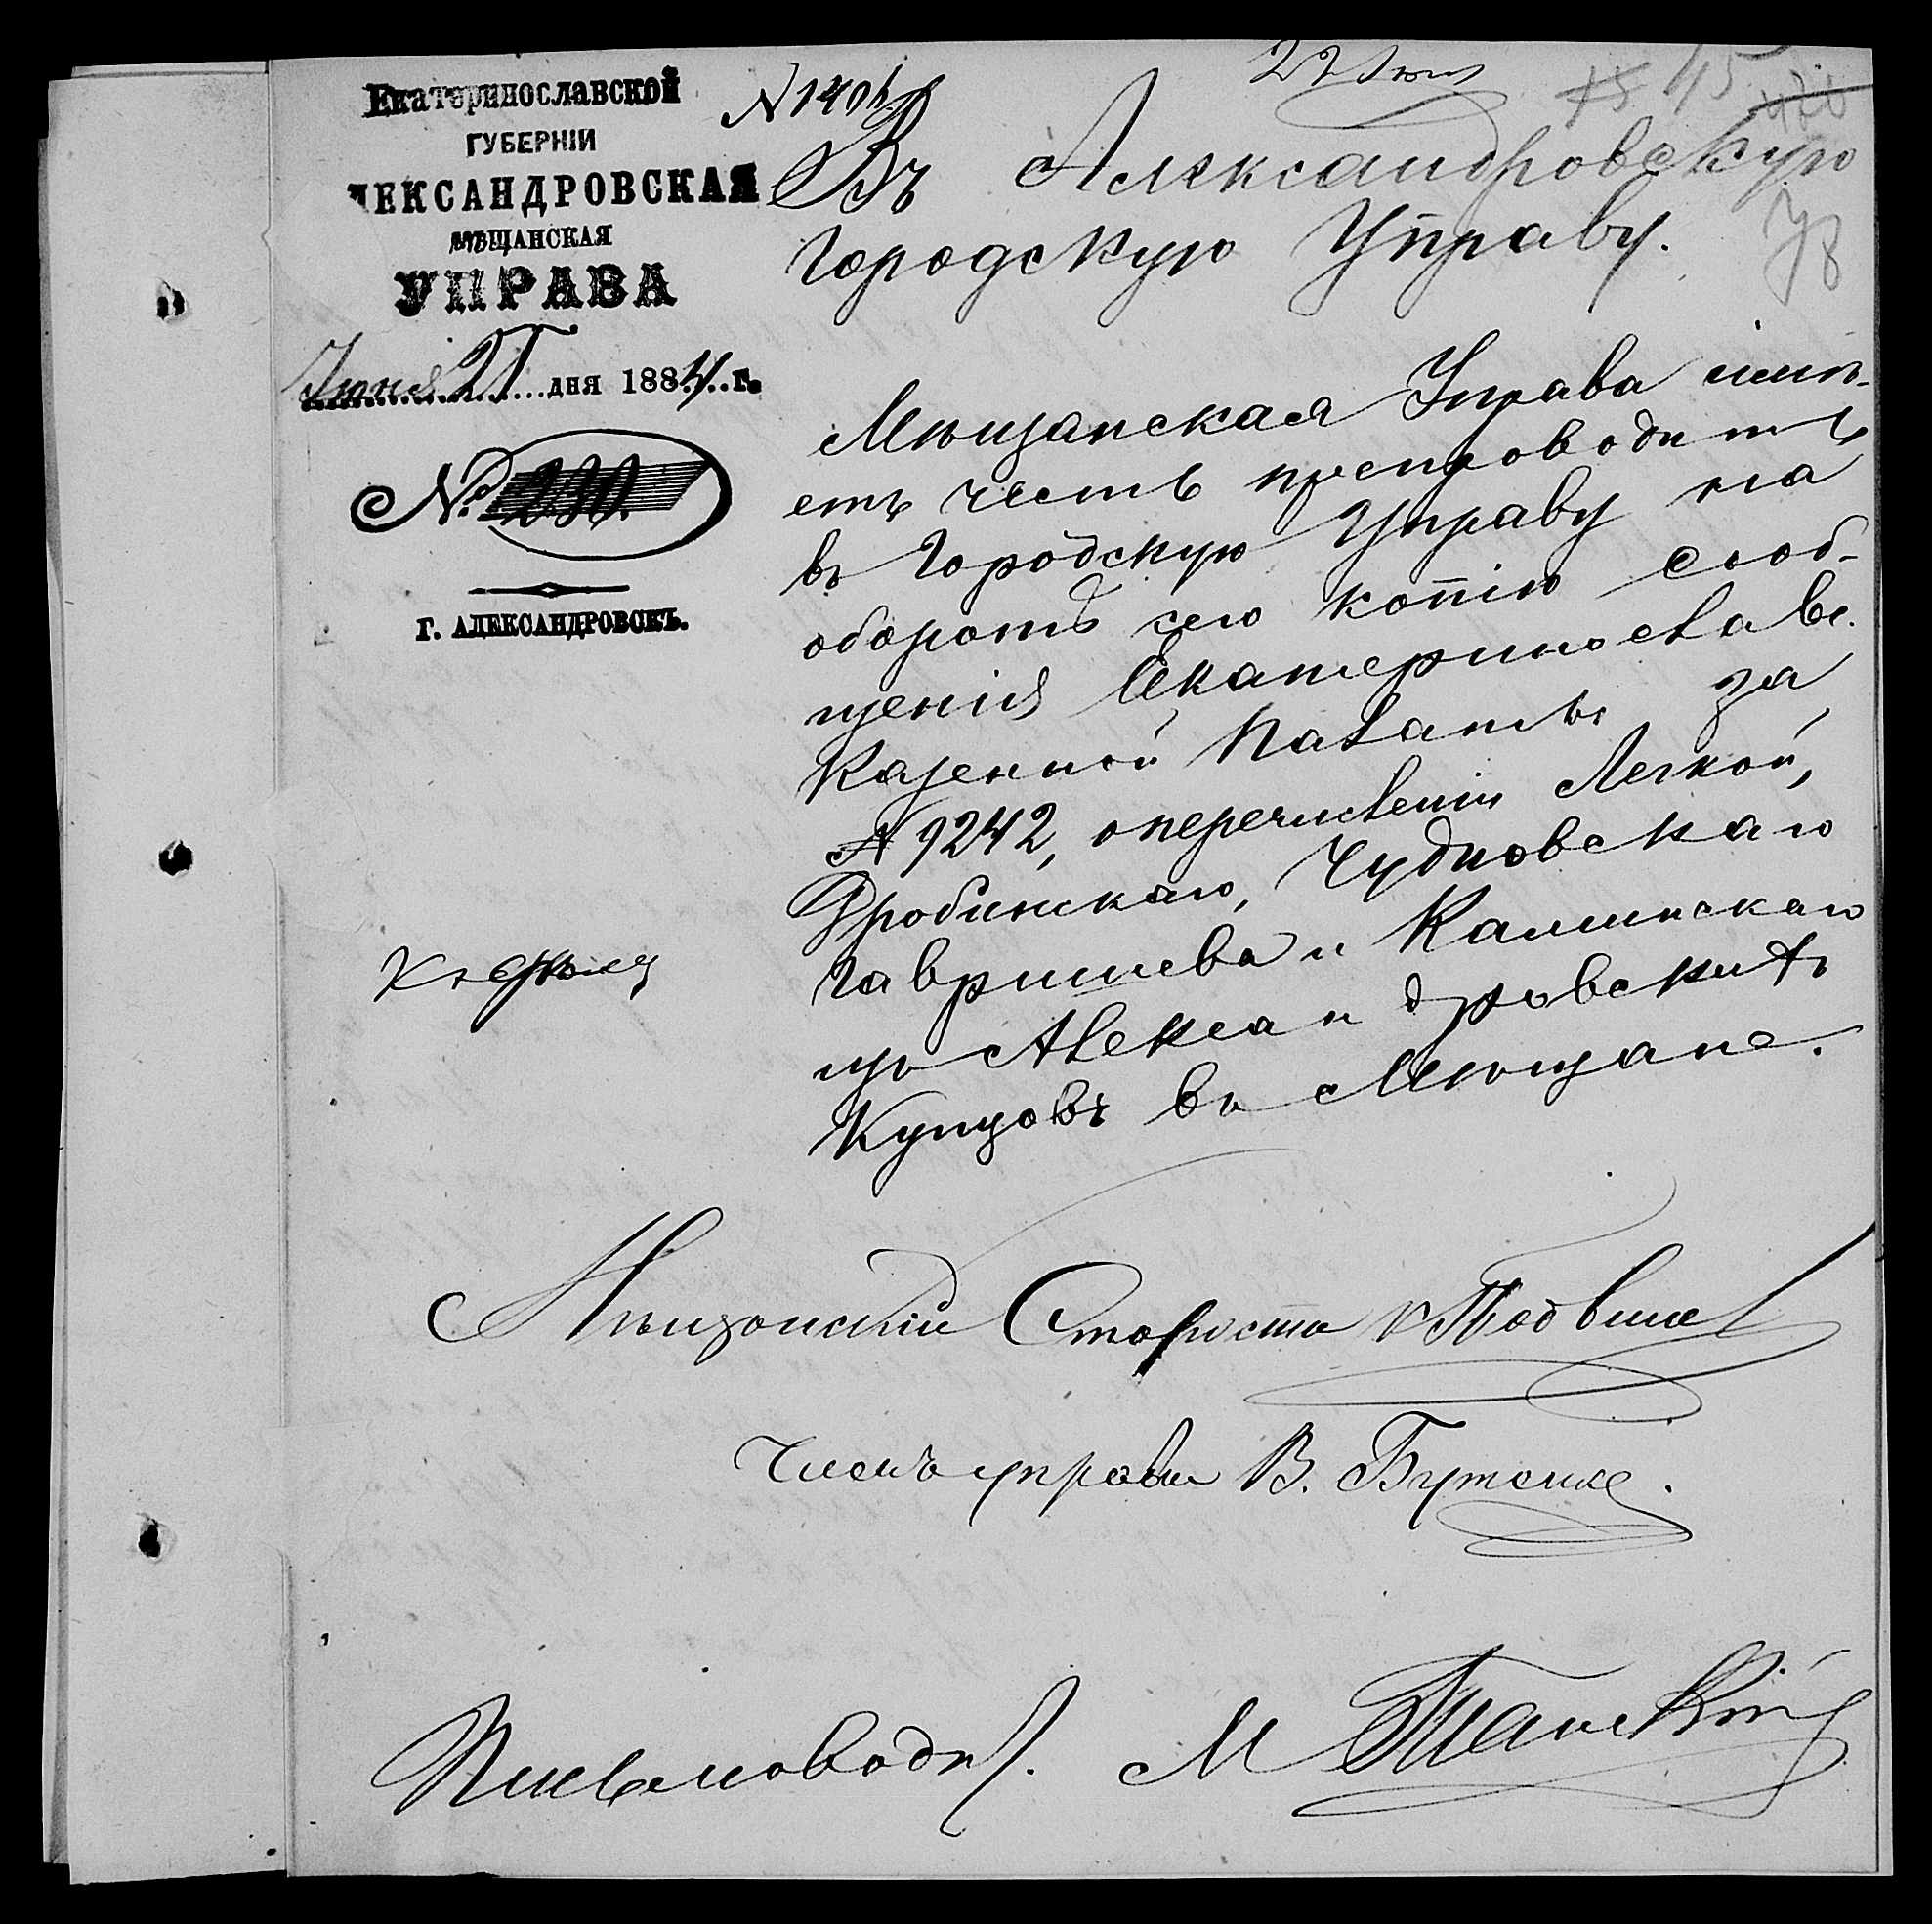 Екатеринославской
ГУБЕРНІИ
ЛЕКСАНДРОВСКАЯ
МѢЩАНСКАЯ
УПРАВА
Іюня 21 дня 1884 г.
№ 230.
Г. АЛЕКСАНДРОВСКЪ.
22 Іюня
45
78
Въ Александровскую
Городскую Управу.
Мѣщанская Управа имѣ-
етъ честь препроводить
въ Городскую Управу на
оборотѣ сего копію сооб-
щенія Екатеринославс.
Казенной Палаты за
№ 9242, о перечисленіи Легкой,
Дробинскаго, Чудновскаго
Гавришева и Калинскаго
изъ Александровскихъ
Купцовъ въ Мѣщане.
Къ дѣлу
Мѣщанскій Староста
Членъ управы В. Бутенко.
Письмоводт. М